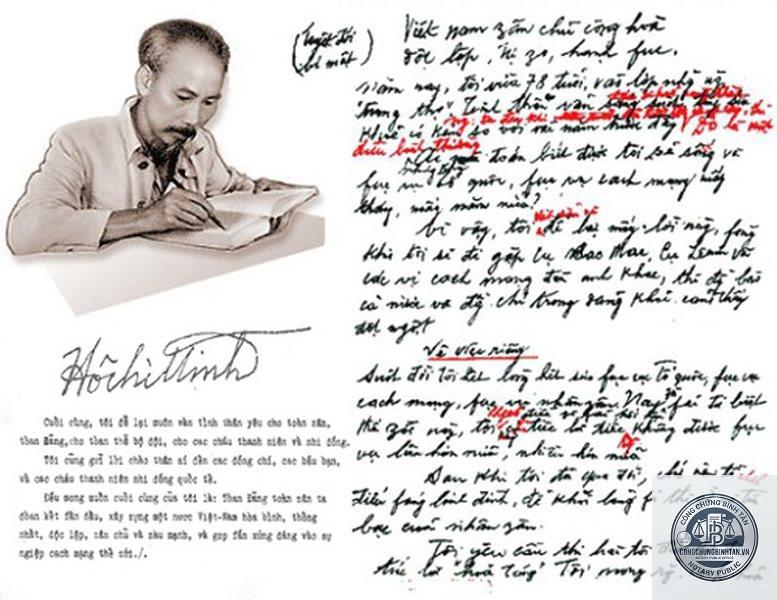 Hồ Chí Minh
Cuối cùng, tôi để lại muôn vàn tình thân yêu cho toàn zân,
than Đảng, cho than thể bộ đội, cho cac cháu thanh niên và nhi đồng.
Tôi cũng gửi lời chào thân ái đến cac đồng chí, cac bầu bạn,
và cac cháu thanh niên nhi đồng quốc tế.
Đều mong muốn cuối cùng của tôi là: Than Đảng toàn zân ta
đoàn kết fấn đấu, xây zựng một nươc Việt-Nam hòa bình, thống
nhất, độc lập, zân chủ và zàu mạnh, và gop fần xứng đáng vào sự
ngiệp cách mạng thế zới./.
(tuyệt đối
bí mật)
Việt nam zân chủ cộng hoà
độc lập, tự zo, hạnh fuc.
Năm nay, tôi vừa 78 tuổi, vào lớp những ng
"trung thọ". Tinh thần vẫn
khoẻ có kém so với vài năm trước đây
điều bình thường
toán biết được tôi sẽ sống và
fục vụ tổ quốc, fục vụ cach mạng mấy
thang, mấy năm nữa?
Vì vậy, tôi để lại mấy lời này, fòng
khi tôi sẽ đi gặp cụ Cac Mac, cụ Lenin và
cac vị cach mạng đàn anh khac, thì đồng bào
cả nước và đồng chí trong Đảng khỏi cảm thấy
đột ngột
Về việc riêng
Suốt đời tôi hết lòng hết sức fục vụ Tổ quốc, fục vụ
cach mạng, fục vụ nhân zân. Nay fải từ biệt
thế zới này, tôi
điều là tiếc không được fục
vụ lâu hơn nữa, nhiều hơn nữa
Sau khi tôi đã qua đời, chớ nên tổ
điếu fúng linh đình, để khỏi lãng fí
bạc của nhân zân.
Tôi yêu cầu thi hài tôi
tức là "hoả táng". Tôi mong
CÔNG CHỨNG BÌNH TÂN
CONGCHUNGBINHTAN.VN
NOTARY PUBLIC OFFICE
NOTARY PUBLIC